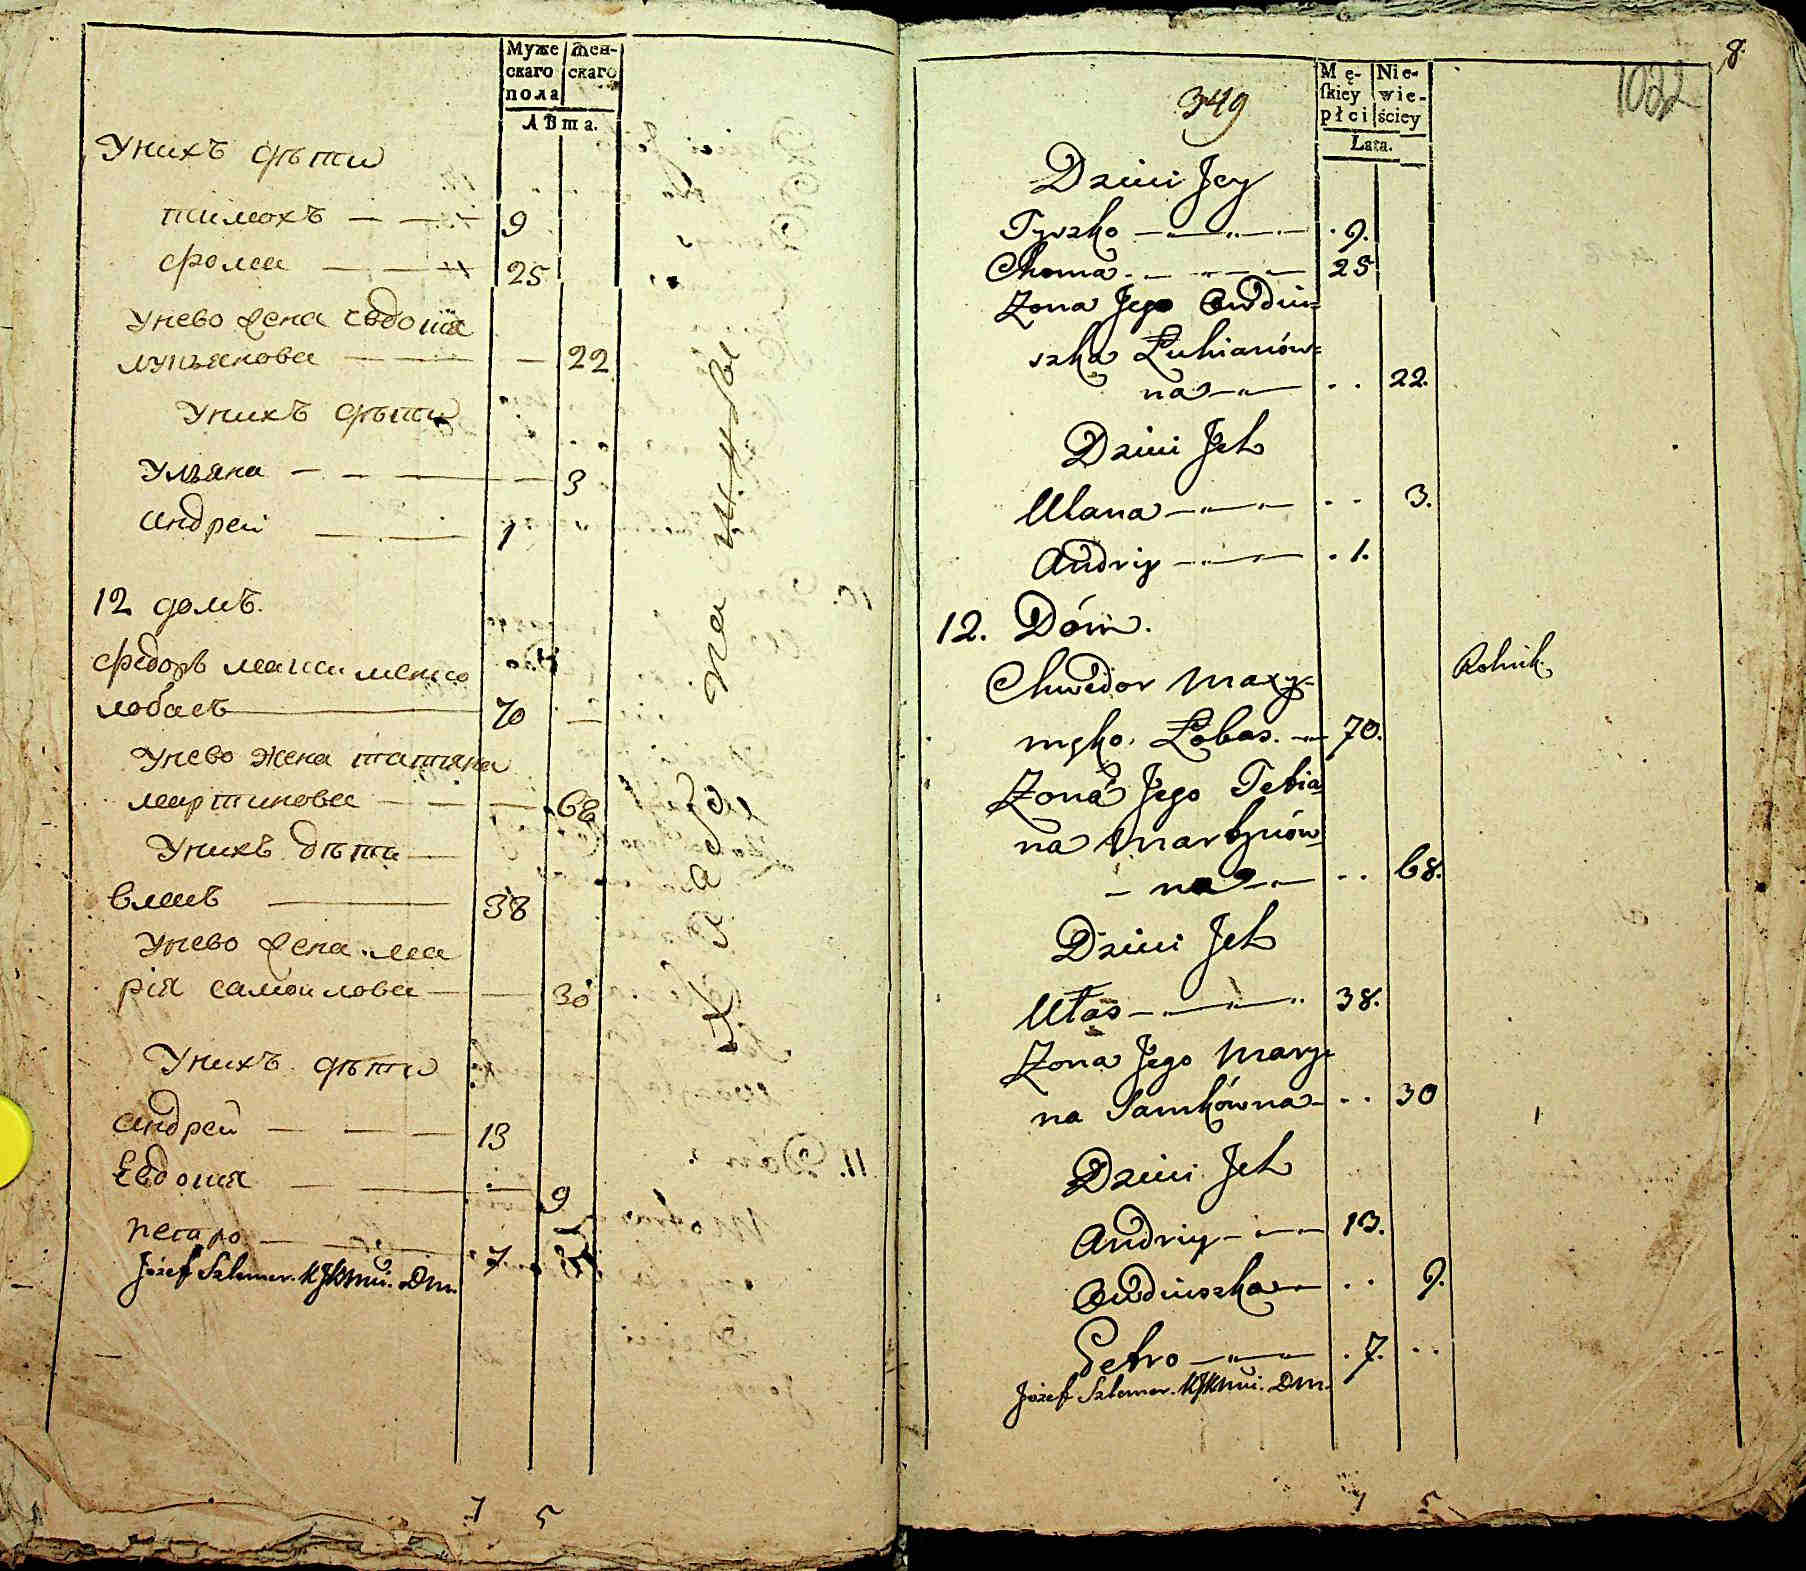 Муже
скаго
пола
Жен-
скаго
Лѣта.
Унихъ дѣти
тимохъ 9
фома 25
унево жена евдокия
лукьянова 22
Унихъ дѣти
Ульяна 3
андрей 1
12 домъ.
федоръ максименко
лобасъ 70
унево жена татияна
мартинова 68
Унихъ дѣти
власъ 38
унево жена ма
рія самоилова 30
Унихъ дѣти
андрей 13
Евдокия 9
петро 7
Józef Szlemer
7 5
349
8.
1022
Mę-
skiey
płci
Nie-
wie-
ściey
Lata.
Dzieci Jey
Tyszko 9.
Choma 25
Żona Jego Owdiu=
szka Łukianów=
na 22.
Dzieci Ich
Ulana 3.
Andriy 1.
12. Dóm.
Rolnik.
Chwedor Maxy=
mko. Łobas. 70.
Żona Jego Tetia
na Martynów
na 68.
Dzieci Ich
Ułas 38.
Żona Jego Mary=
na Samkówna 30
Dzieci Ich
Andriy 13.
Owdiuszka 9.
Petro 7.
Józef Szlemer
7 5